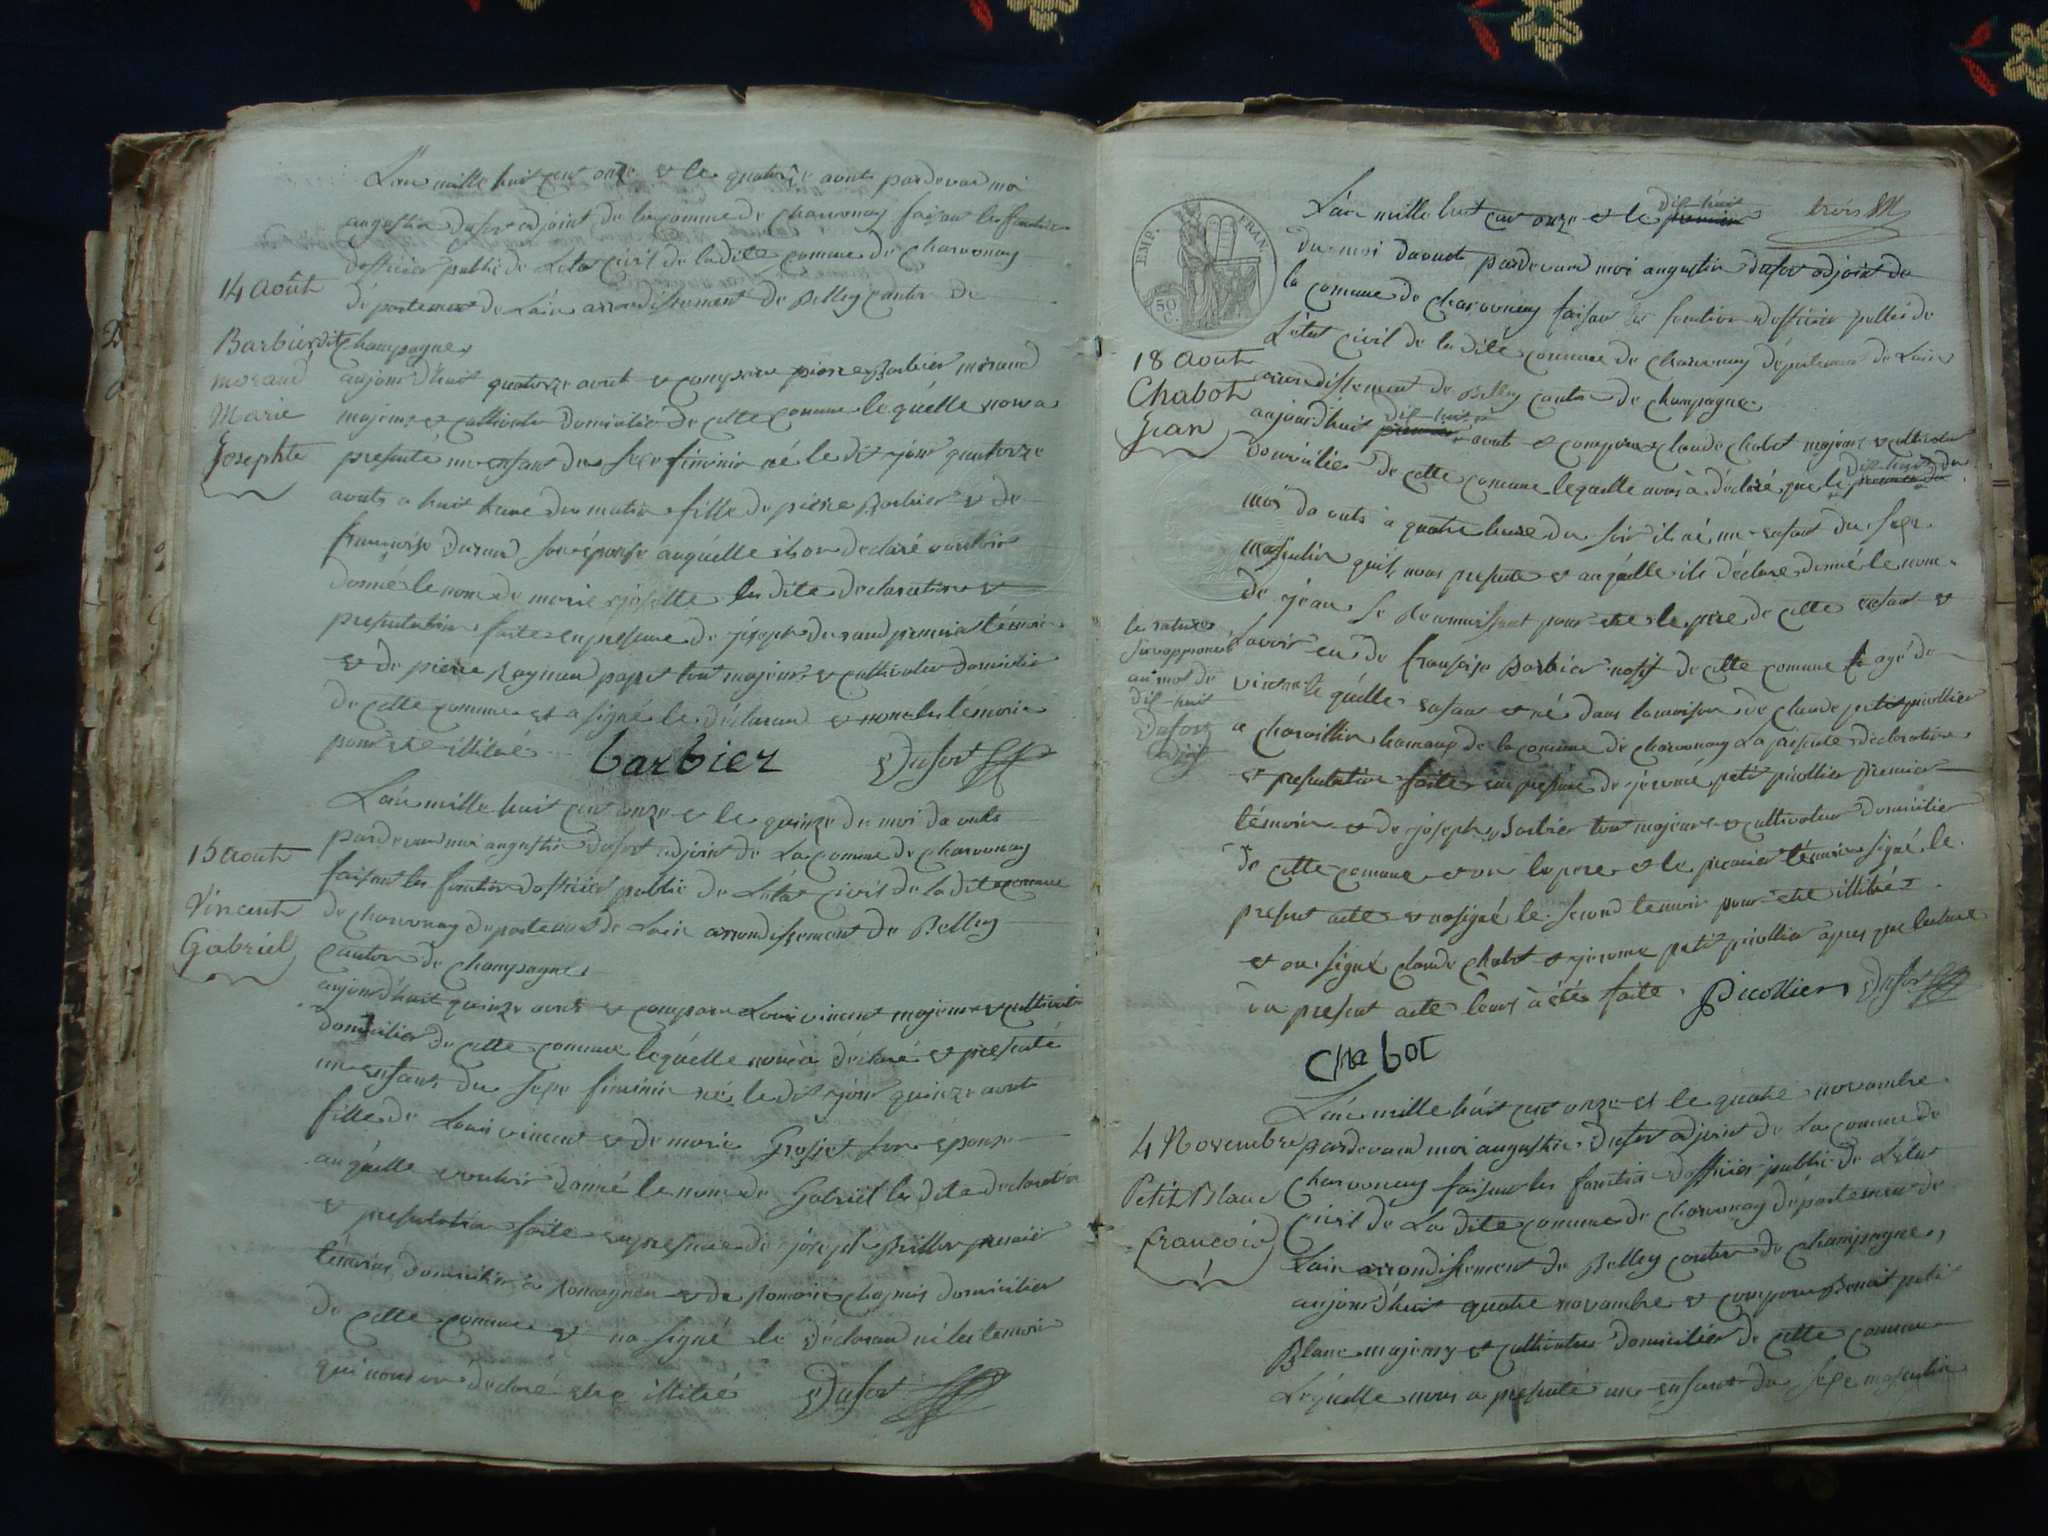 L'an mille huit cent onze et le quatorze aouts pardevand moi
augustin dufort adjoint de la comune de Charvonay faisant les fonction
dofficier public de Letat civil de ladite comune de Charvonay
département de Lain arrondissement de Belley canton de
Champagne
14 Août
Barbier dit
morand
Marie
Josephte
aujourdhuit quatorze aout et comparu pierre Barbier morand
majeur et cultivateur domicilié de cette comune lequelle nous a
presenté un enfant du sexe feminin né le dit jour quatorze
aouts a huit heure du matin fille de pierre Barbier et de
francoise durand son épouse auquelle ils on declaré vouloir
donné le nom de marie josette les dite declaration et
presentation faite en presence de joseph durand premier témoin
et de pierre Reymond papet tout majeur et cultivateur domicilié
de cette comune et a signé le déclarand et non les témoin
pour etre illitré
barbier Dufort
Lan mille huit cent onze et le quinze du moi da outs
pardevand moi augustin Dufort adjoint de La comune de Charvonay
faisant les fonction dofficier public de Létat civil de la dite comune
de Charvonay departement de Lain arrondissement de Belley
canton de Champagne
15 aout
Vincent
Gabriel
aujourdhuit quinze aout et comparu Louis vincent majeur et cultivateur
domicilier de cette comune lequelle nous à declaré et presenté
un enfant du sexe feminin né le dit jour quinze aout
fille de Louis vincent et de marie Grosjet son épouse
auquelle vouloir donné le nom de Gabriel les dite declaration
et presentation faite en presence de joseph Billion premier
témoins domicilier à Romagneu et de Romain chapuis domicilier
de cette comune et na signé le déclarand ni les temoin
qui nous on declaré etre illitré Dufort
EMP. FRAN.
50 C.
Lan mille huit cent onze et le premier dix-huit trois
du moi daouts pardevand moi augustin Dufort adjoint de
la comune de Charvonay faisant les fonction dofficier public de
Létat civil de la dite comune de Charvonay département de Lain
arrondissement de Belley canton de Champagne
18 Aout
Chabot
Jean
aujourdhuit premier dix-huit aout et comparu claude Chabot majeur et cultivateur
domicilié de cette comune lequelle nous à déclaré que le premier du dix-huit du
moi da outs à quatre heure du soir il né un enfant du sexe
masculin quil nous presente et auquelle ils déclare donné le nom
de jean se reconnoissant pour etre le pere de cette enfant et
Lavoir eu de francoise Barbier natif de cette comune agé de
lequelle enfant et né dans la maison de Claude petit picollier
a Charvillin hamaup de la comune de Charvonay La presente déclaration
et presentation faite en presence de jérome petit picollier premier
témoin et de joseph Barbier tout majeur et cultivateur domicilier
de cette comune et on le pere et le premier témoin signé le
present acte et na signé le second temoin pour etre illitré
et on signé claude Chabot et jerome petit picollier apres que lecture
du present acte leurs à été faite. Picollier Dufort
Chabot
la rature
sievapprouvé
au mot de
dix-huit
Dufort
Lan mille huit cent onze et le quatre novembre
pardevand moi augustin Dufort adjoint de La comune de
Charvonay faisant les fonction dofficier public de Létat
civil de La dite comune de Charvonay département de
Lain arrondissement de Belley canton de Champagne
4 Novembre
Petit Blanc
francois
aujourdhuit quatre novembre et comparu Benoit petit
Blanc majeur et cultivateur domicilier de cette comune
Lequelle nous a presenté un enfant du sexe masculin